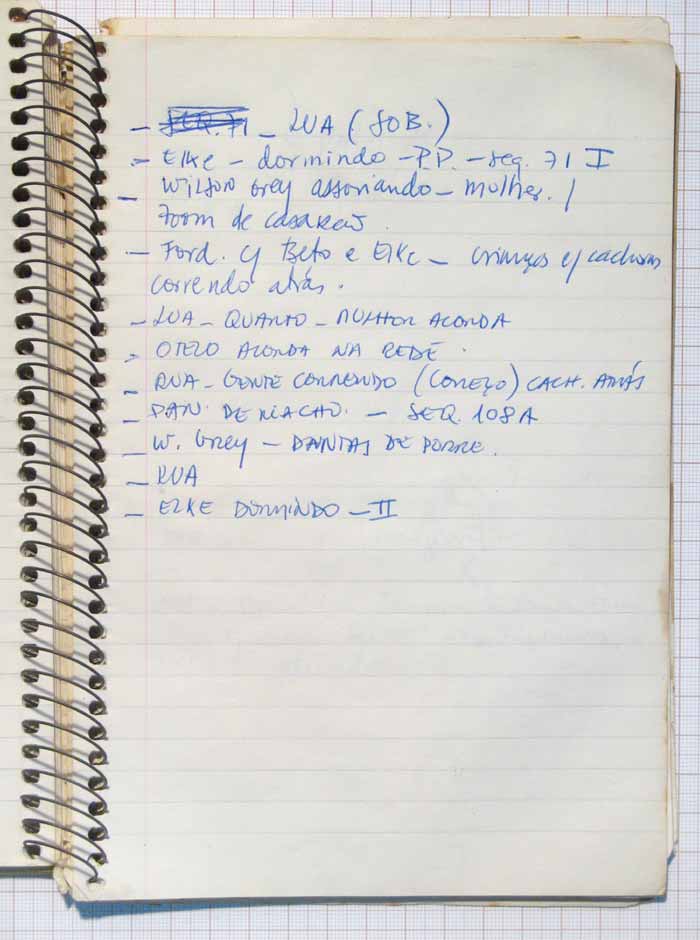 – SEQ. 71 – LUA (SOB.)
– Elke – dormindo – P.P. – seq. 71 I
– Wilson Grey assoviando – mulher. /
Zoom de
– Ford. c/ Beto e Elke – crianças e/ cachorros
correndo atrás.
– LUA – QUARTO – MULHER ACORDA
– OTELO ACORDA NA REDE.
– RUA – GENTE CORRENDO (COMEÇO) CACH. ATRÁS
– PAN. DE RIACHO. – SEQ. 108A
– W. Grey – DANTAS DE PORRE.
– LUA
– ELKE DORMINDO – II